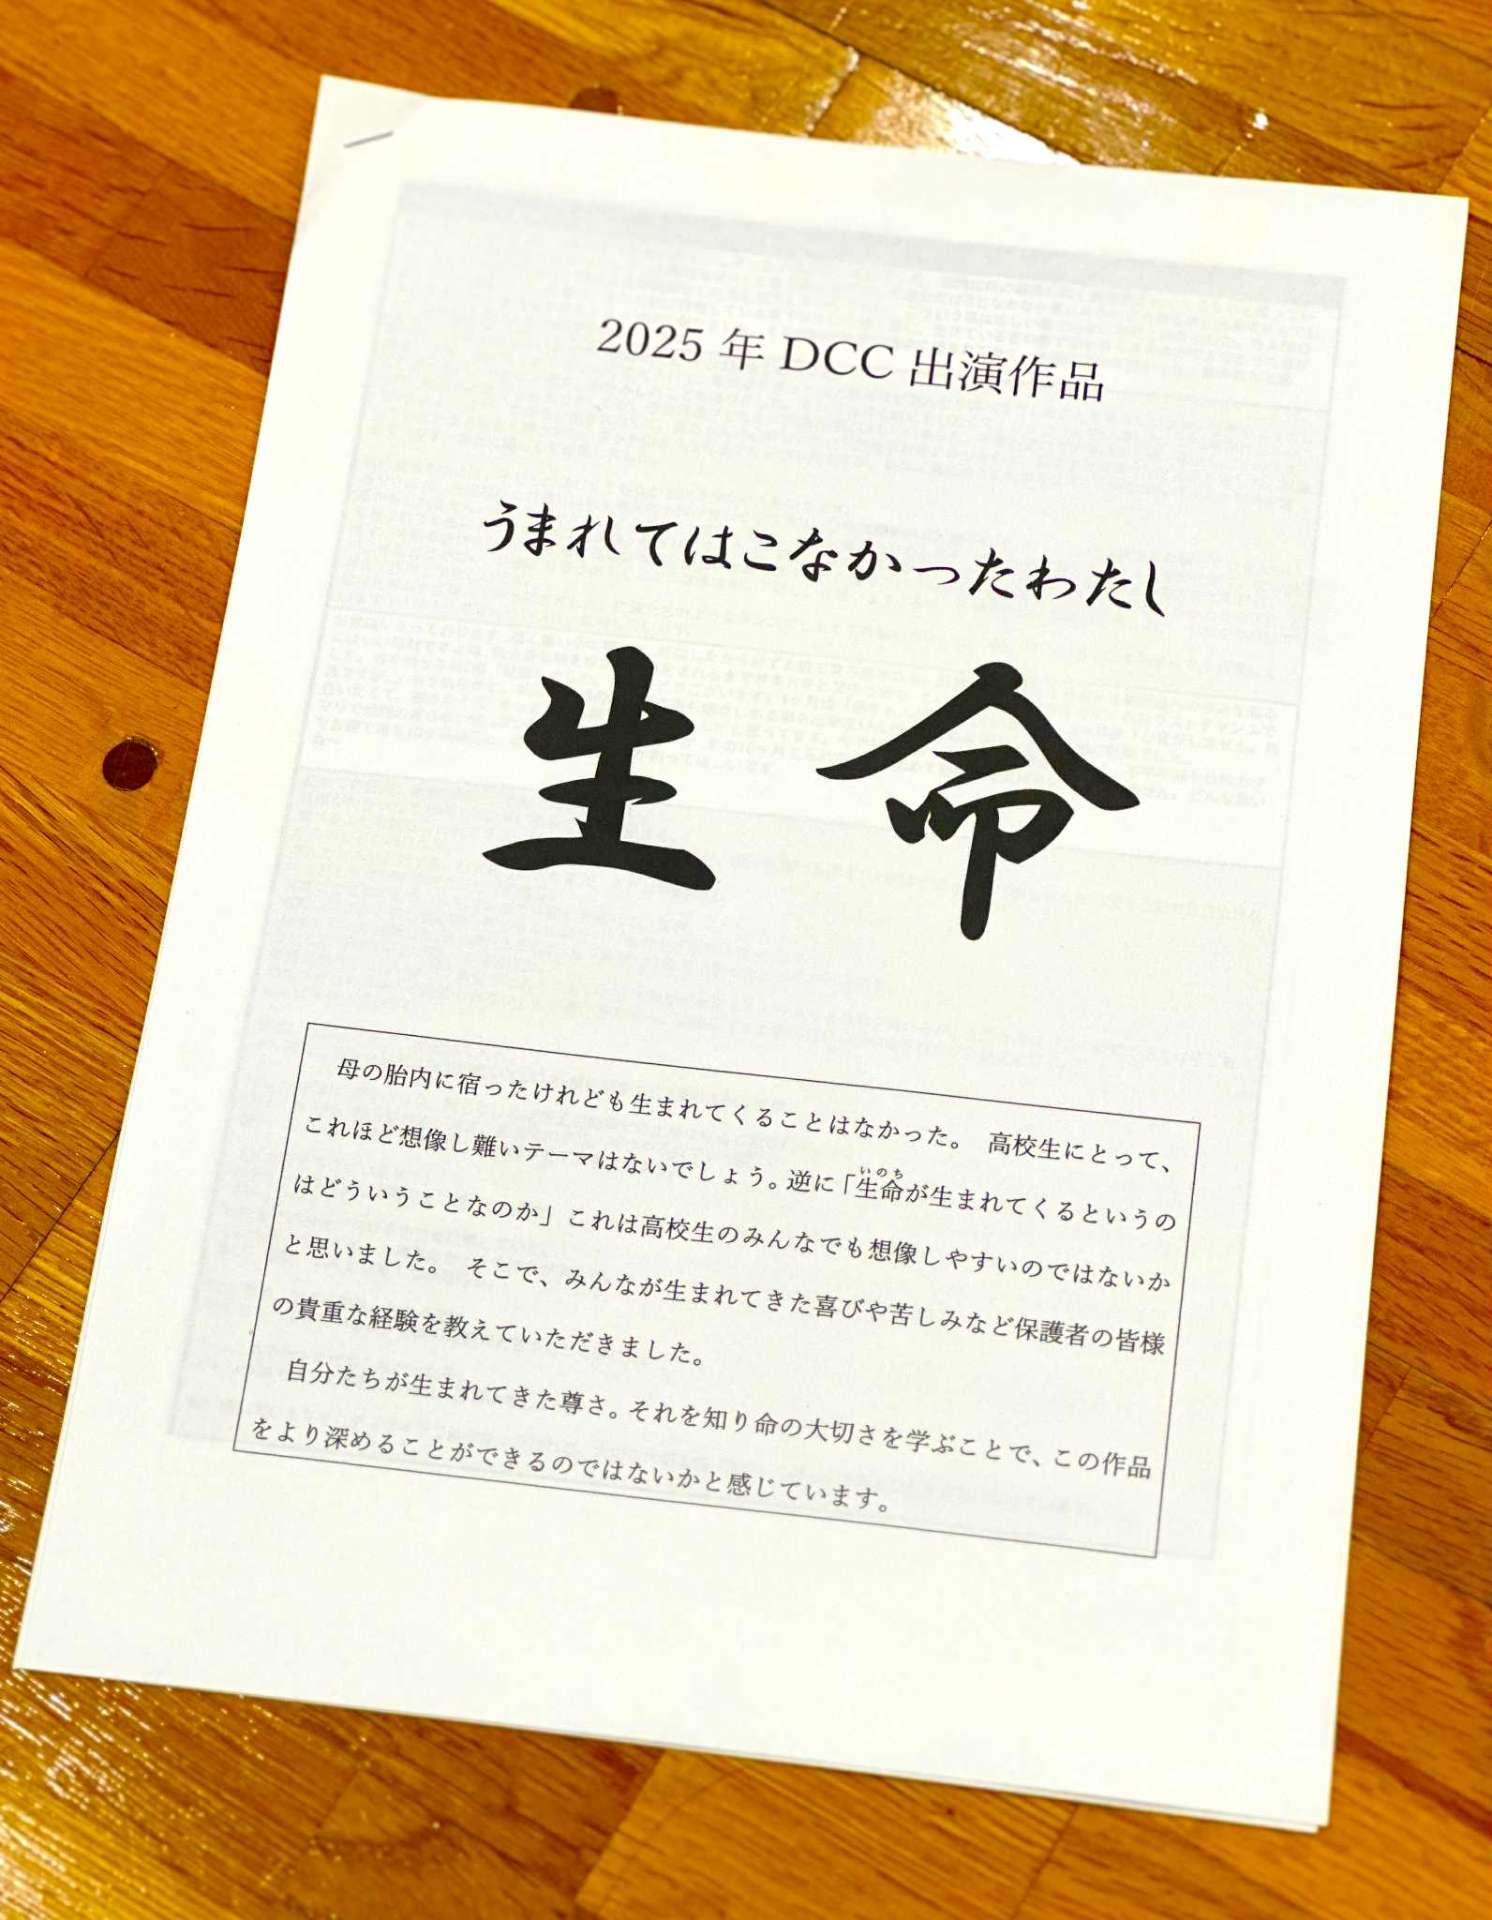 2025 年 DCC 出演作品
うまれてはこなかったわたし
生 命
母の胎内に宿ったけれども生まれてくることはなかった。 高校生にとって、
これほど想像し難いテーマはないでしょう。逆に「生命が生まれてくるというの
いのち
はどういうことなのか」これは高校生のみんなでも想像しやすいのではないか
と思いました。 そこで、みんなが生まれてきた喜びや苦しみなど保護者の皆様
の貴重な経験を教えていただきました。
自分たちが生まれてきた尊さ。それを知り命の大切さを学ぶことで、この作品
をより深めることができるのではないかと感じています。